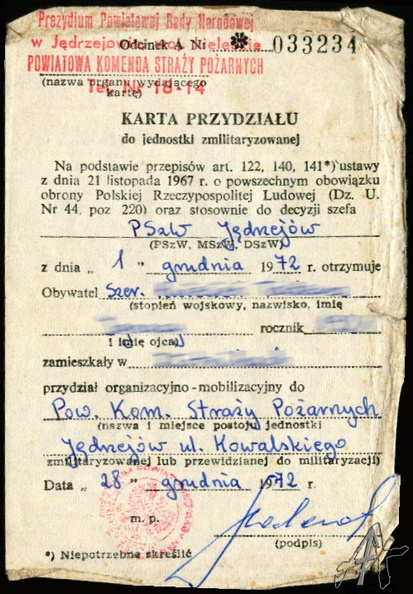 Prezydium Powiatowej Rady Narodowej
w Jędrzejowie
Odcinek A Nr * 033234
POWIATOWA KOMENDA STRAŻY POŻARNYCH
(nazwa organu wydającego
kartę)
Tel. Nr 18-14
KARTA PRZYDZIAŁU
do jednostki zmilitaryzowanej
Na podstawie przepisów art. 122, 140, 141*) ustawy
z dnia 21 listopada 1967 r. o powszechnym obowiązku
obrony Polskiej Rzeczypospolitej Ludowej (Dz. U.
Nr 44, poz 220) oraz stosownie do decyzji szefa
PSzW Jędrzejów
(PSzW, MSzW, DSzW)
z dnia „ 1 " grudnia 1972 r. otrzymuje
Obywatel Szer.
(stopień wojskowy, nazwisko, imię
rocznik
i imię ojca)
zamieszkały w
przydział organizacyjno-mobilizacyjny do
Pow. Kom. Straży Pożarnych
(nazwa i miejsce postoju jednostki
Jędrzejów ul. Kowalskiego
zmilitaryzowanej lub przewidzianej do militaryzacji)
Data „ 28 " grudnia 1972 r.
m. p.
(podpis)
*) Niepotrzebne skreślić